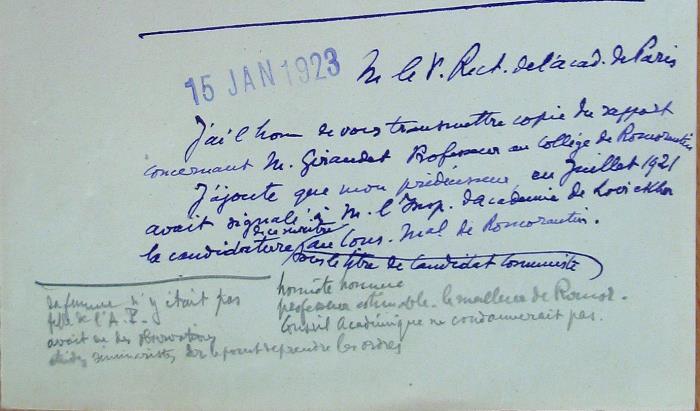 15 JAN 1923
M le V. Rect. de l'acad. de Paris
J'ai l'honn de vous transmettre copie du rapport
concernant M. Giraudet Professeur au Collège de Romorantin
J'ajoute que mon prédécesseur en Juillet 1921
avait signalé à M. l'Insp. d'académie de
la candidature au Cons. Mal de Romorantin.
sous le titre de Candidat Communiste
honnête homme
professeur estimable. le meilleur de Romor.
Conseil Académique ne condamnerait pas.
sa femme n'y était pas
de l'A.
avait eu des observations
sur le point de prendre les ordres